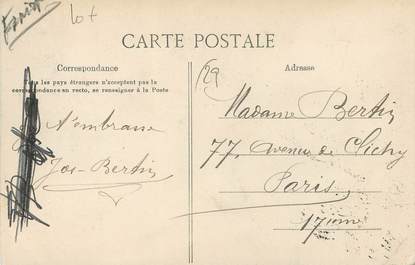 Lot
CARTE POSTALE
Correspondance
Tous les pays étrangers n'acceptent pas la
correspondance en recto, se renseigner à la Poste
T'embrasse
Jos-Bertin
Adresse
29
Madame Bertin
77. Avenue de Clichy
Paris.
17ième